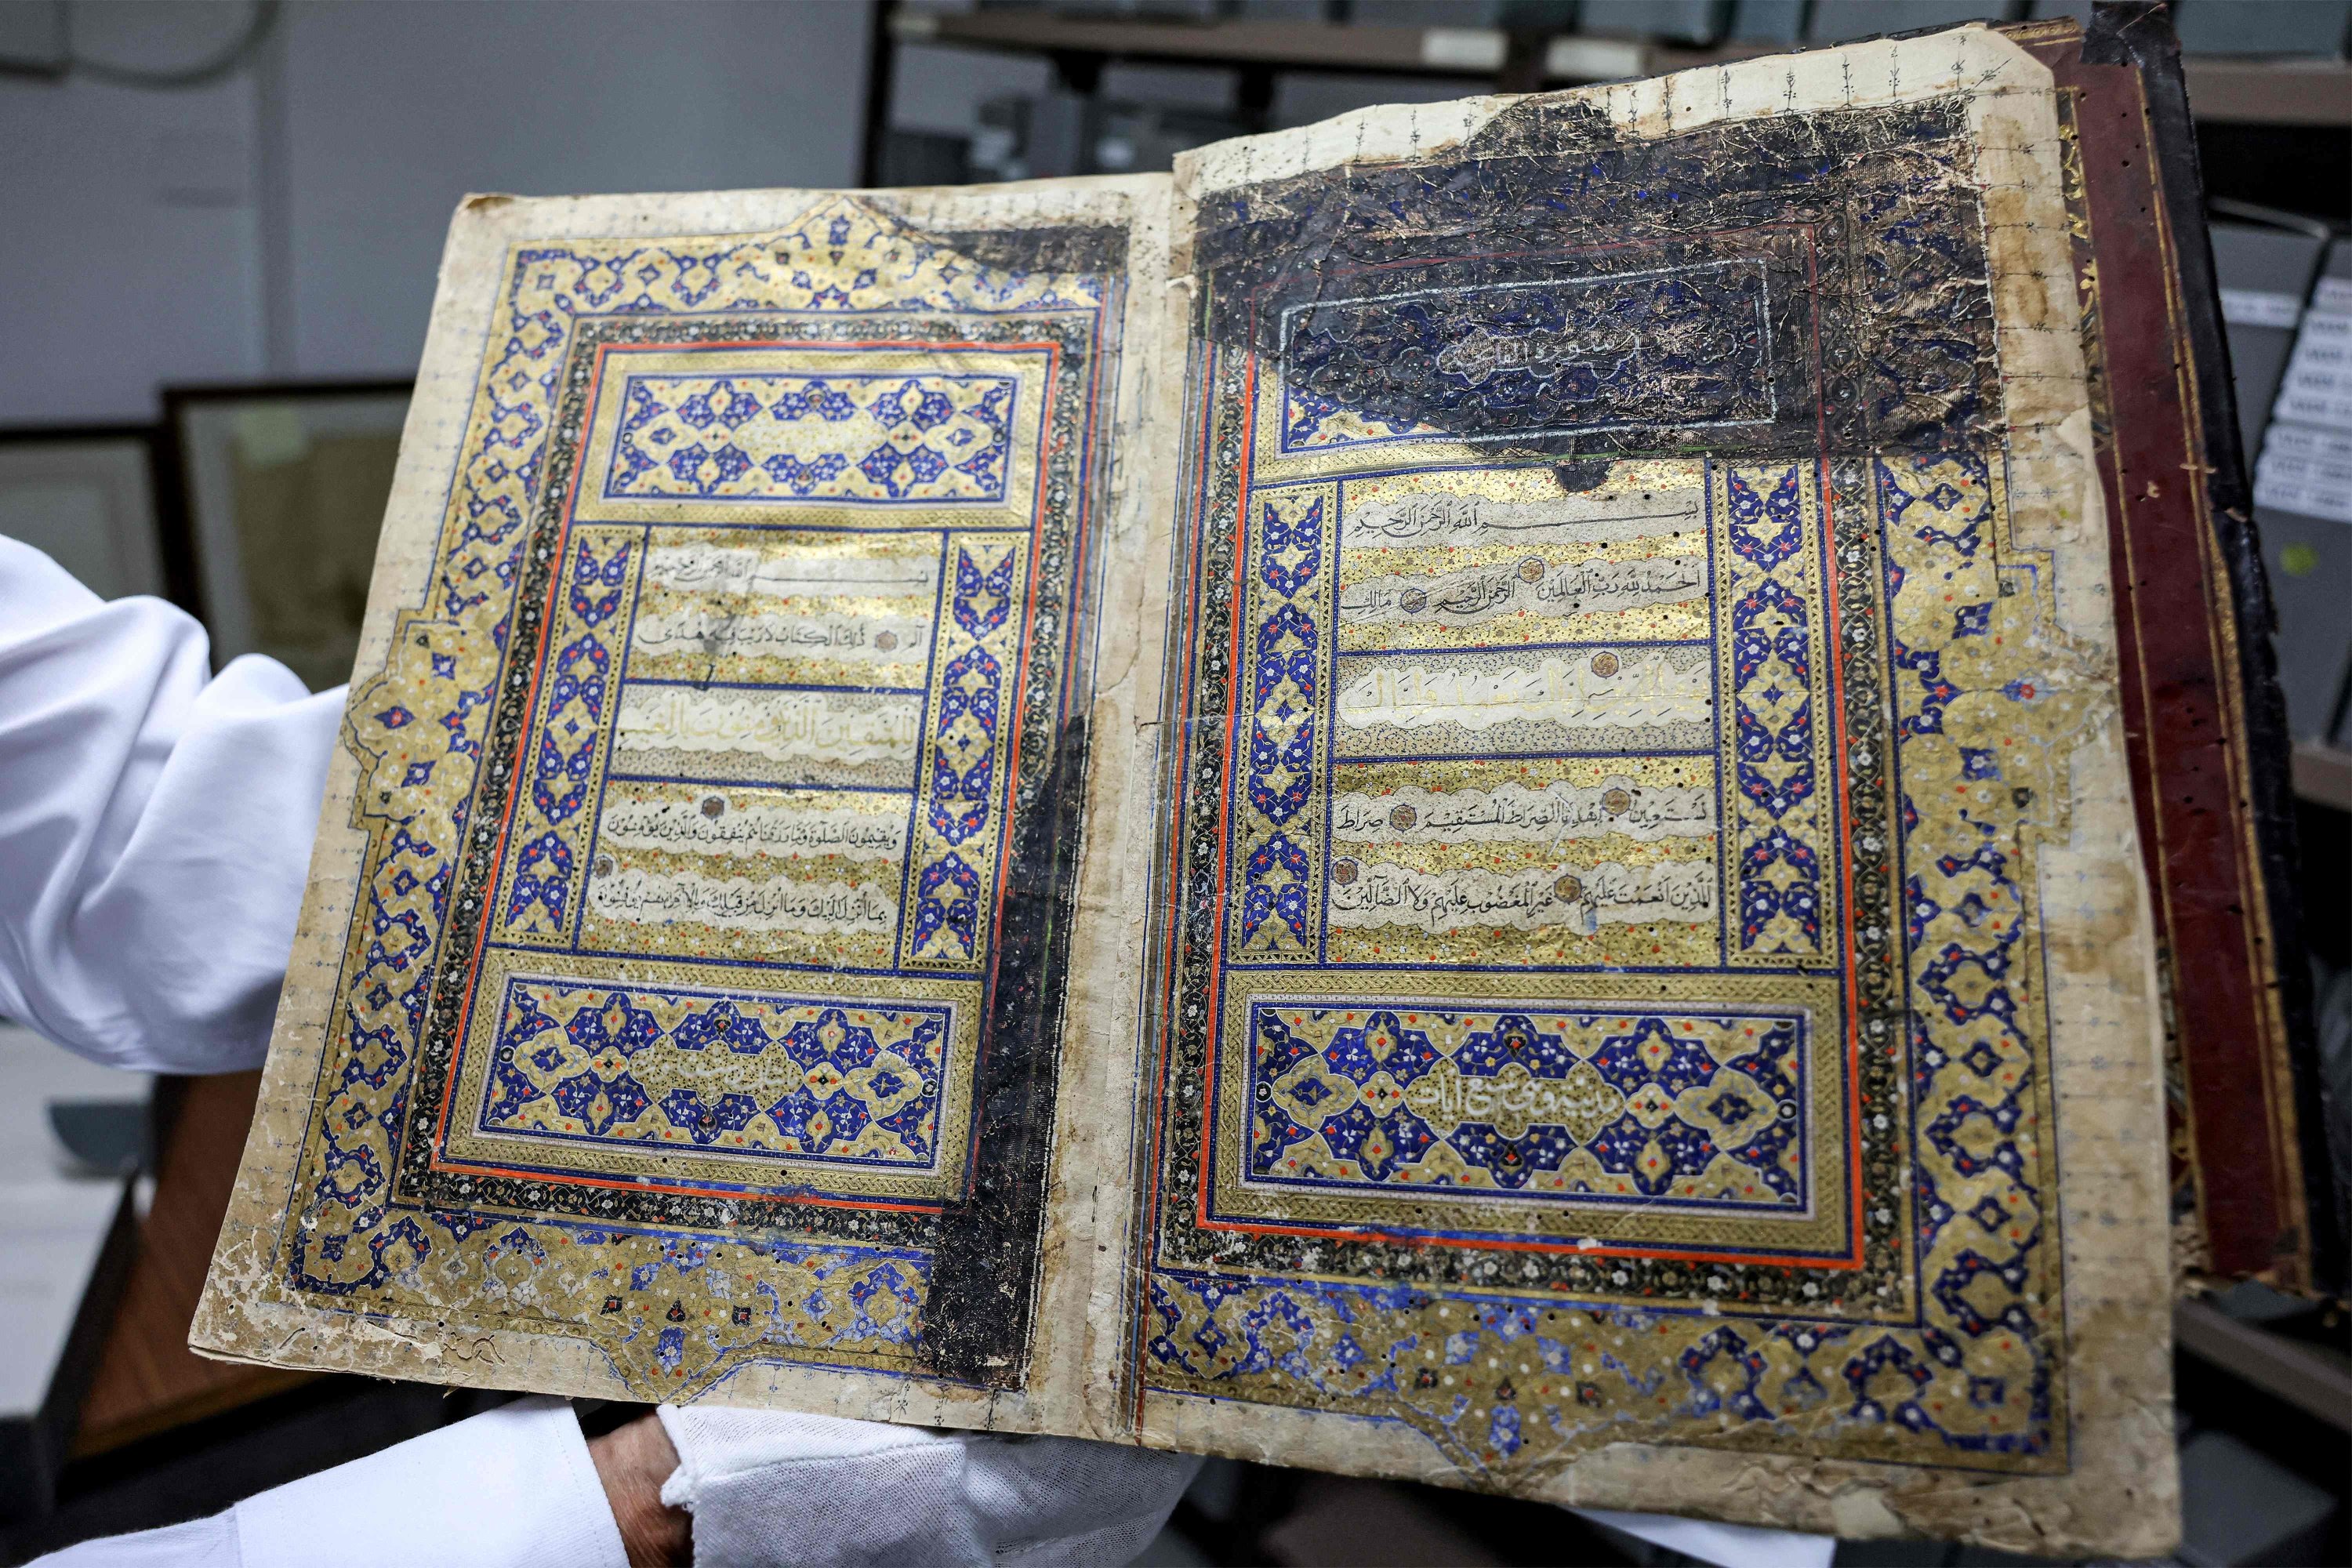 سورة الفاتحة
بسم الله الرحمن الرحيم
الحمد لله رب العالمين الرحمن الرحيم مالك
نستعين اهدنا الصراط المستقيم صراط
الذين انعمت عليهم غير المغضوب عليهم ولا الضالين
مدنية وهي سبع ايات
بسم الله الرحمن الرحيم
الم ذلك الكتاب لا ريب فيه هدى
للمتقين الذين يؤمنون بالغيب
ويقيمون الصلوة ومما رزقناهم ينفقون والذين يؤمنون
بما انزل اليك وما انزل من قبلك وبالاخرة هم يوقنون